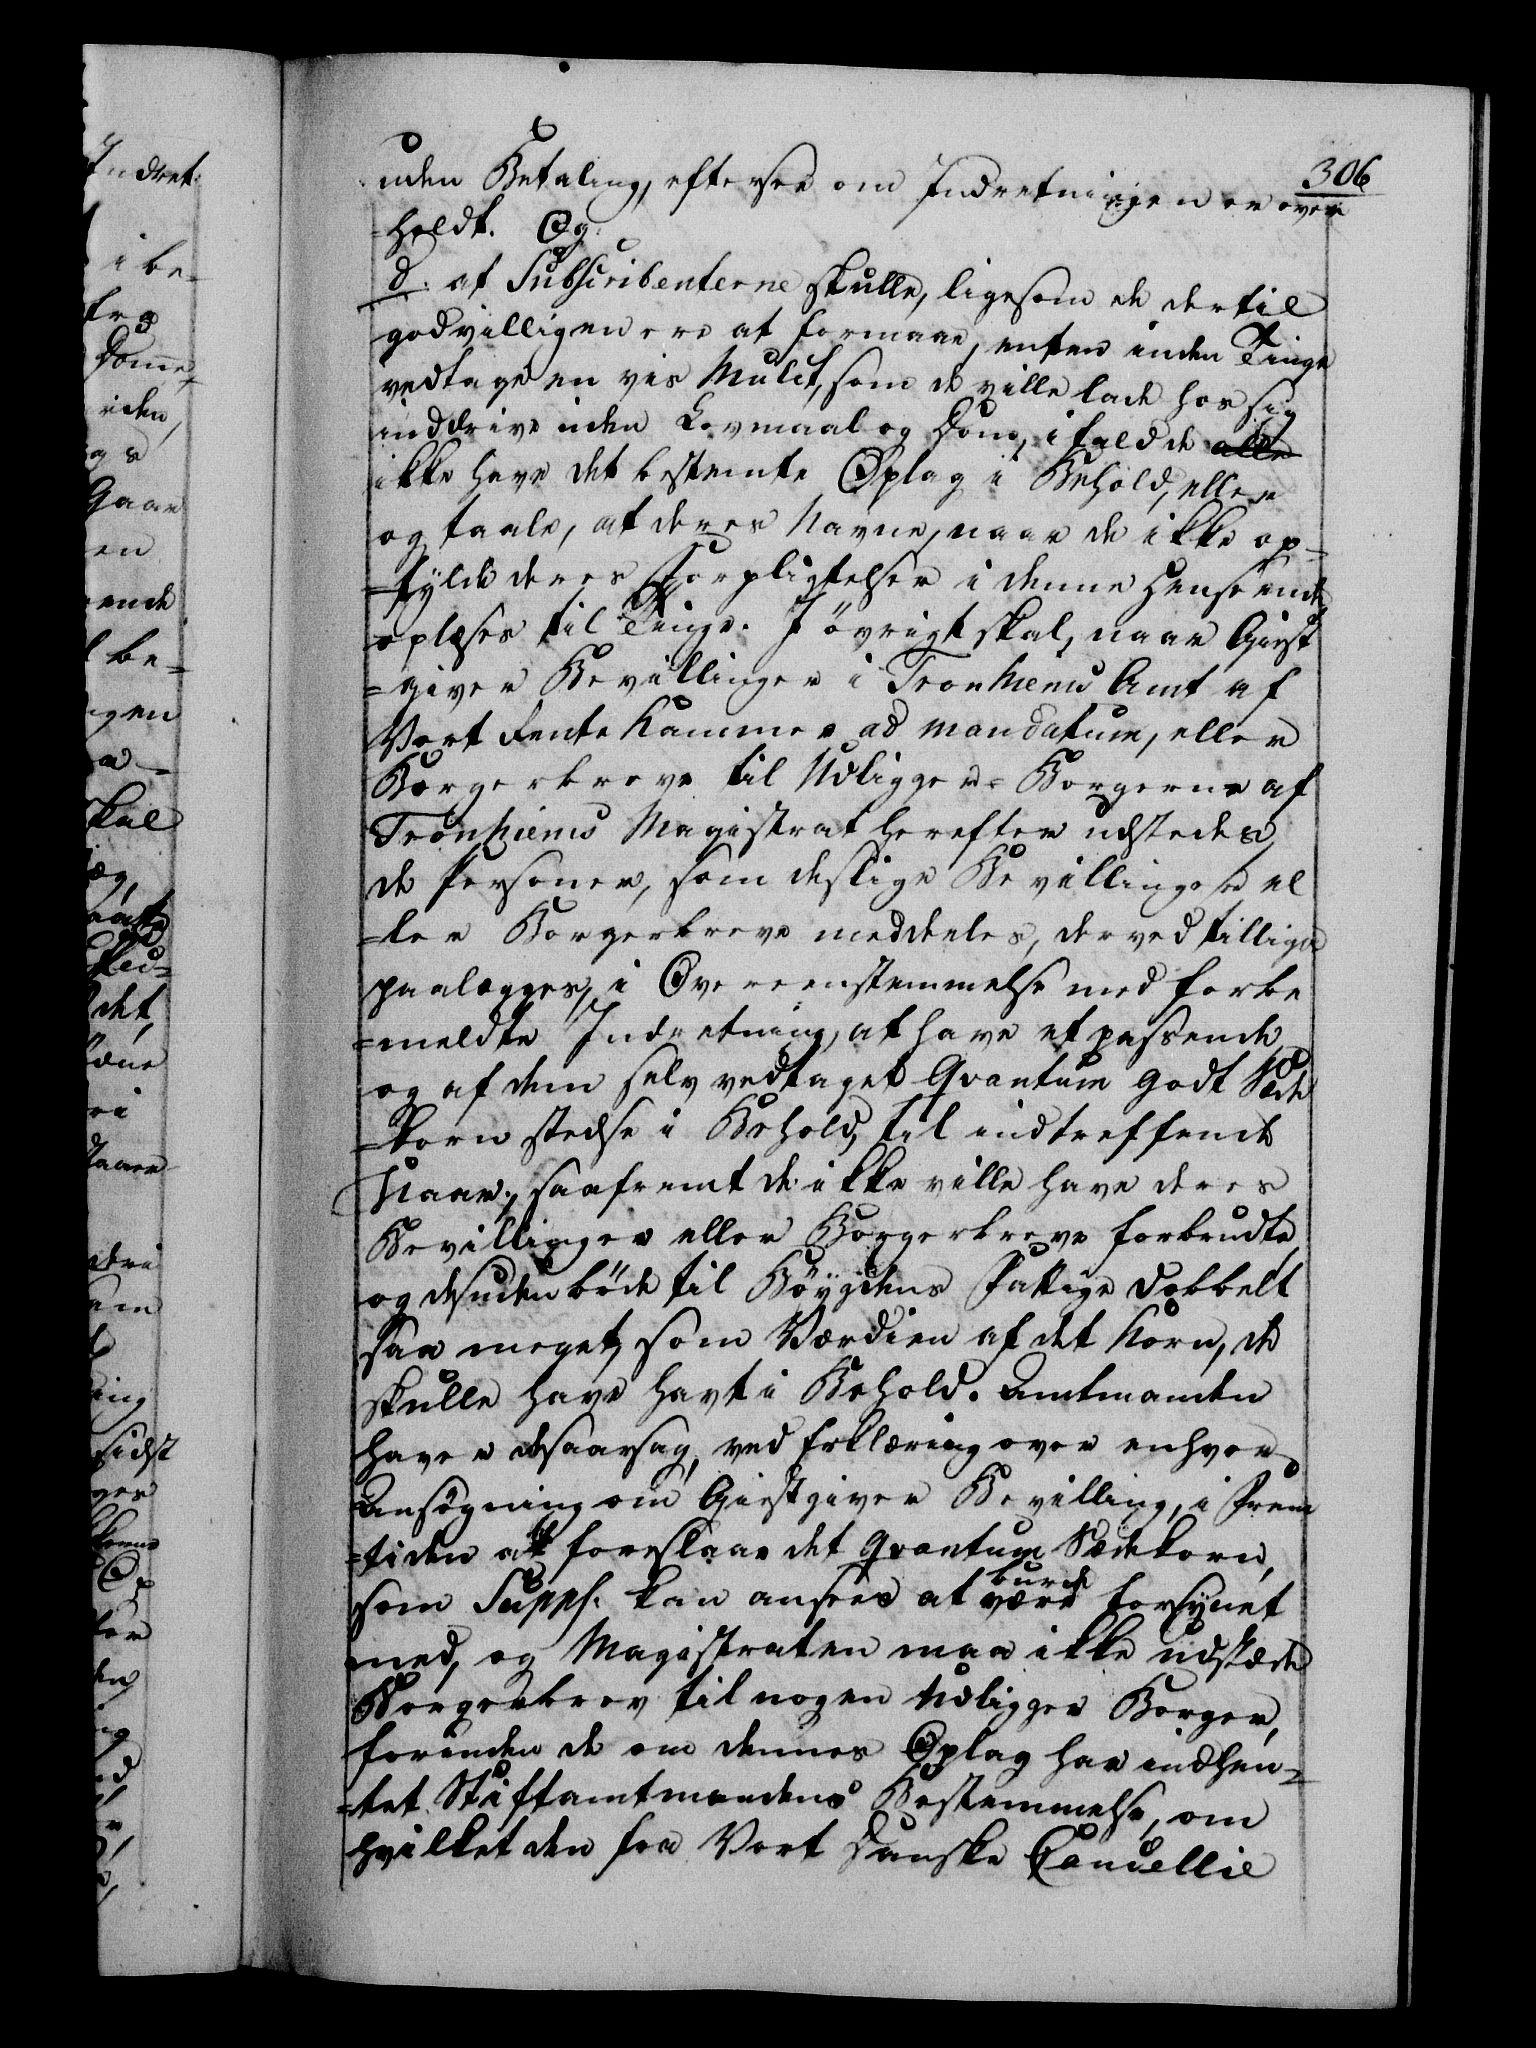 306
uden Betaling, eftersee om Indretningen er over
=holdt. Og
d. at Subscribenterne skulle, ligesom de dertil
godvilligen ere at formaae, enten inden Tinge
vedtage en vis Mulct, som de ville lade hos sig
inddrive uden Lovmaal og Dom, i fald de alle
ikke have det bestemte Oplag i Behold, eller
og taale, at deres Navne, naar de ikke op=
=fylde deres Forpligtelser i denne Henseende,
oplæses til Tinge. I övrigt skal, naar Giest
=giver Bevillinger i Tronhiems Amt af
Vort Rente Kammer ad mandatum, eller
Borgerbreve til Udligger=Borgerne af
Tronhiems Magistrat herefter udstedes,
de Personer, som deslige Bevillinger el
=ler Borgerbreve meddeles, derved tillige
paalægges, i Overeenstemmelse med forbe
=meldte Indretning, at have et passende
og af dem selv vedtaget Qvantum godt Sæde
=korn stedse i Behold, til indtreffende
Vaar, saafremt de ikke ville have deres
Bevillinger eller Borgerbreve forbrudte,
og desuden böde til Böygdens Fattige dobbelt
saa meget, som Værdien af det Korn, de
skulle have havt i Behold. Amtmanden
haver desaarsag, ved Erklæring over enhver
Ansögning om Giestgiver Bevilling, i Frem
=tiden at foreslaae det Qvantum Sædekorn,
som Supps. kan ansees at burde være forsynet
med, og Magistraten maa ikke udstæde
Borgerbrev til nogen Udligger Borger,
forinden de om dennes Oplag har indhen=
=tet Stiftamtmandens Bestemmelse, om
hvilket den fra Vort Danske Cancellie